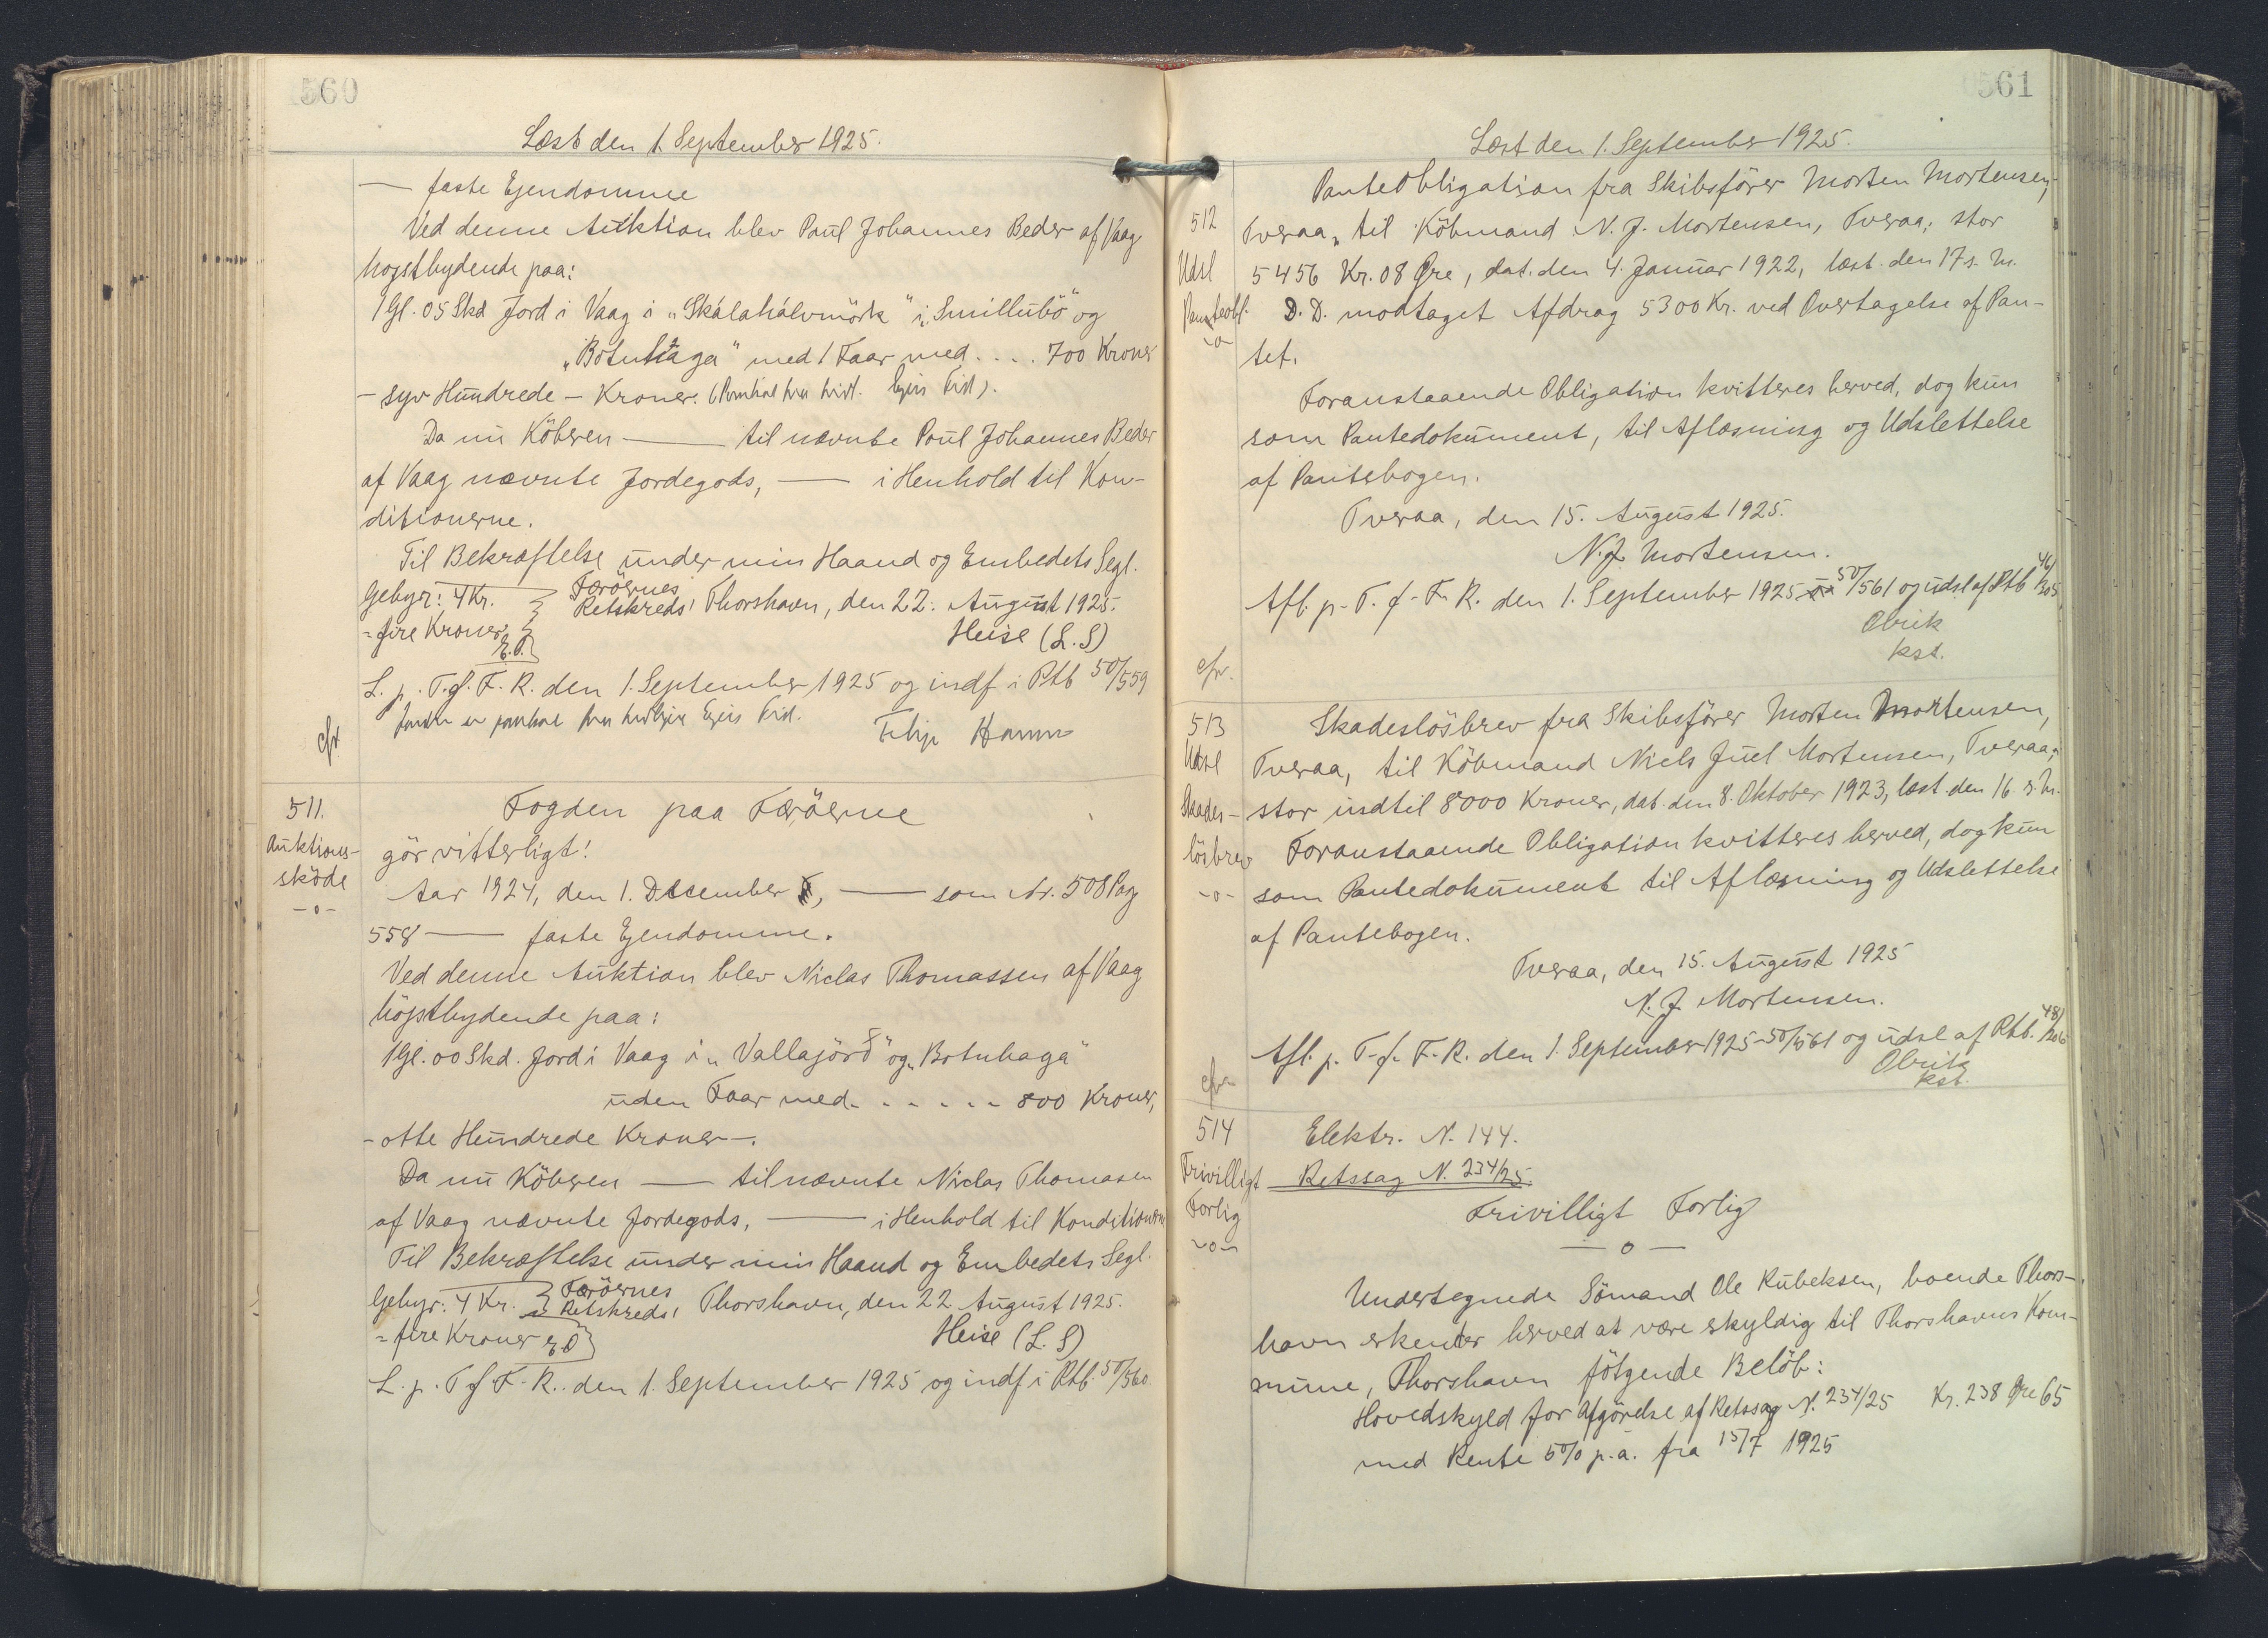 560
Læst den 1. September 1925.
— faste Ejendomme
Ved denne Auktion blev Poul Johannes Beder af Vaag
højstbydende paa:
1 Gl. 05 Skd Jord i Vaag i „Skálahálvmörk" i „Smillubö" og
„Botnhaga" med 1 Faar med .... 700 Kroner
- syv Hundrede - Kroner.
Da nu Köberen — til nævnte Poul Johannes Beder
af Vaag nævnte Jordegods, — i Henhold til Kon-
ditionerne.
Til Bekræftelse under min Haand og Embedets Segl.
Gebyr: 4 Kr.
= fire Kroner
E.O.
Færöernes
Retskreds' Thorshavn, den 22. August 1925.
Heise (L.S)
L. p. T. f. F. R. den 1. September 1925 og indf i Ptb 50/559
cfr
511.
Auktions-
sköde
-o-
Fogden paa Færöerne
gör vitterligt!
Aar 1924, den 1. December, — som Nr. 508 Pag
558 — faste Ejendomme.
Ved denne Auktion blev Niclas Thomassen af Vaag
höjstbydende paa:
1 Gl. 00 Skd. Jord i Vaag i „Vallajörð" og „Botnhaga"
uden Faar med ...... 800 Kroner,
- otte Hundrede Kroner -.
Da nu Köberen — til nævnte Niclas Thomasen
af Vaag nævnte Jordegods, — i Henhold til Konditionerne
Til Bekræftelse under min Haand og Embedets Segl.
Gebyr: 4 Kr.
= fire Kroner E.O
Færöernes
Retskreds' Thorshavn, den 22. August 1925.
Heise (L.S)
L. p. T. f. F. R. den 1. September 1925 og indf i Ptb. 50/560
561
Læst den 1. September 1925.
512
Udsl
Panteobl.
-o-
Panteobligation fra Skibsförer Morten Mortensen,
Tveraa, til Köbmand N. J. Mortensen, Tveraa, stor
5456 Kr. 08 Øre, dat. den 4. Januar 1922, læst den 17 s. M.
D. D. modtaget Afdrag 5300 Kr. ved Overtagelse af Pan-
tet.
Foranstaaende Obligation kvitteres herved, dog kun
som Pantedokument, til Aflæsning og Udslettelse
af Pantebogen.
Tveraa, den 15. August 1925.
N. J. Mortensen.
Afl. p. T. f. F. R. den 1. September 1925 50/561 og udsl af Ptb 46/305
Olrik
kst.
cfr.
513
Udsl
Skades-
lösbrev
-o-
Skadeslösbrev fra Skibsförer Morten Mortensen,
Tveraa, til Köbmand Niels Juel Mortensen, Tveraa,
stor indtil 8000 Kroner, dat. den 8. Oktober 1923, læst den 16 s. M.
Foranstaaende Obligation kvitteres herved, dog kun
som Pantedokument til Aflæsning og Udslettelse
af Pantebogen.
Tveraa, den 15. August 1925
N. J. Mortensen.
Afl. p. T. f. F. R. den 1. September 1925 50/561 og udsl af Ptb. 48/206
Olrik
kst.
cfr
514
Frivilligt
Forlig
-o-
Elektr. N. 144.
Retssag N. 234/25.
Frivilligt Forlig
— o —
Undertegnede Sömand Ole Rubeksen, boende Thors-
havn erkender herved at være skyldig til Thorshavns Kom-
mune, Thorshavn fölgende Belöb:
Hovedskyld for Afgörelse af Retssag N. 234/25 Kr. 238 Øre 65
med Rente 5% p.a. fra 15/7 1925